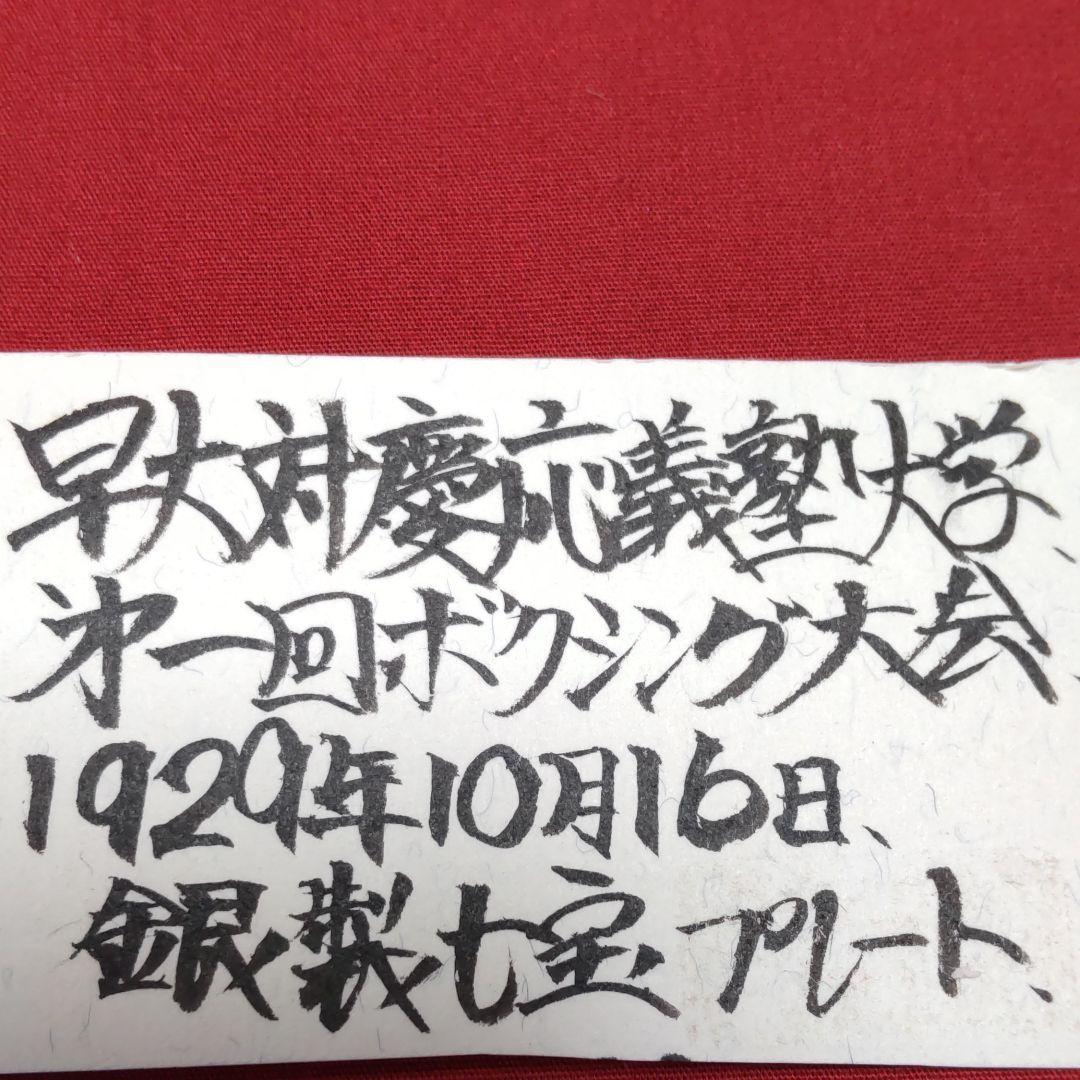 早大対慶応義塾大学、
第一回ボクシング大会、
1929年10月16日、
銀製七宝プレート、